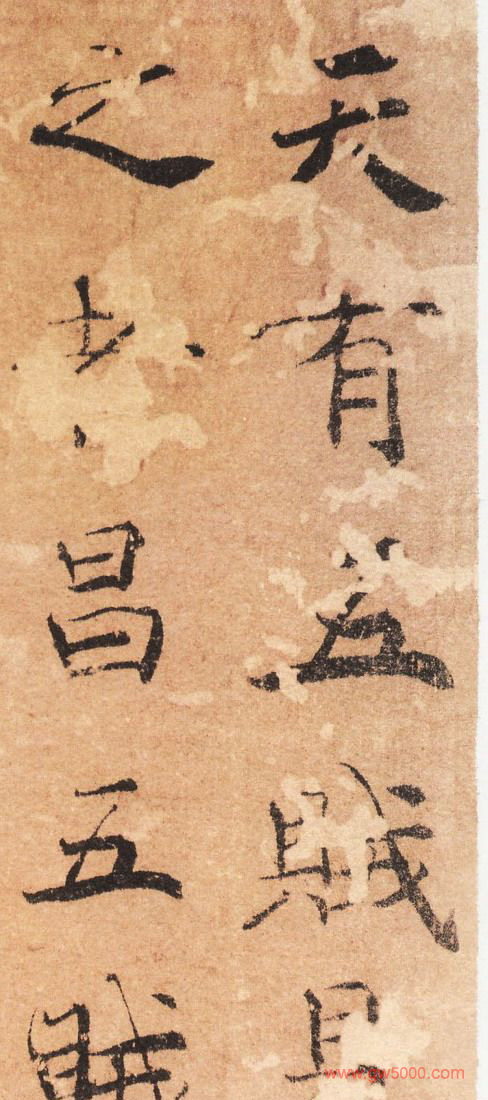 天有五賊
之昌五賊
www.gw5000.com